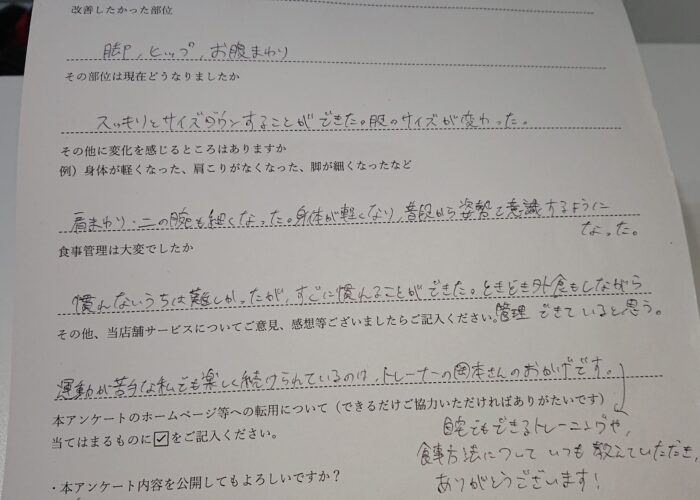 改善したかった部位
脚、ヒップ、お腹まわり
その部位は現在どうなりましたか
スッキリとサイズダウンすることができた。服のサイズが変わった。
その他に変化を感じるところはありますか
例）身体が軽くなった、肩こりがなくなった、脚が細くなったなど
肩まわり・二の腕も細くなった。身体が軽くなり、普段から姿勢を意識するように
なった。
食事管理は大変でしたか
慣れないうちは難しかったが、すぐに慣れることができた。ときどき外食もしながら
管理できていると思う。
その他、当店舗サービスについてご意見、感想等ございましたらご記入ください。
運動が苦手な私でも楽しく続けられているのは、トレーナーの岡本さんのおかげです。
自宅でもできるトレーニングや、
食事方法についていつも教えていただき、
ありがとうございます！
本アンケートのホームページ等への転用について（できるだけご協力いただければありがたいです）
当てはまるものに☑をご記入ください。
・本アンケート内容を公開してもよろしいですか？